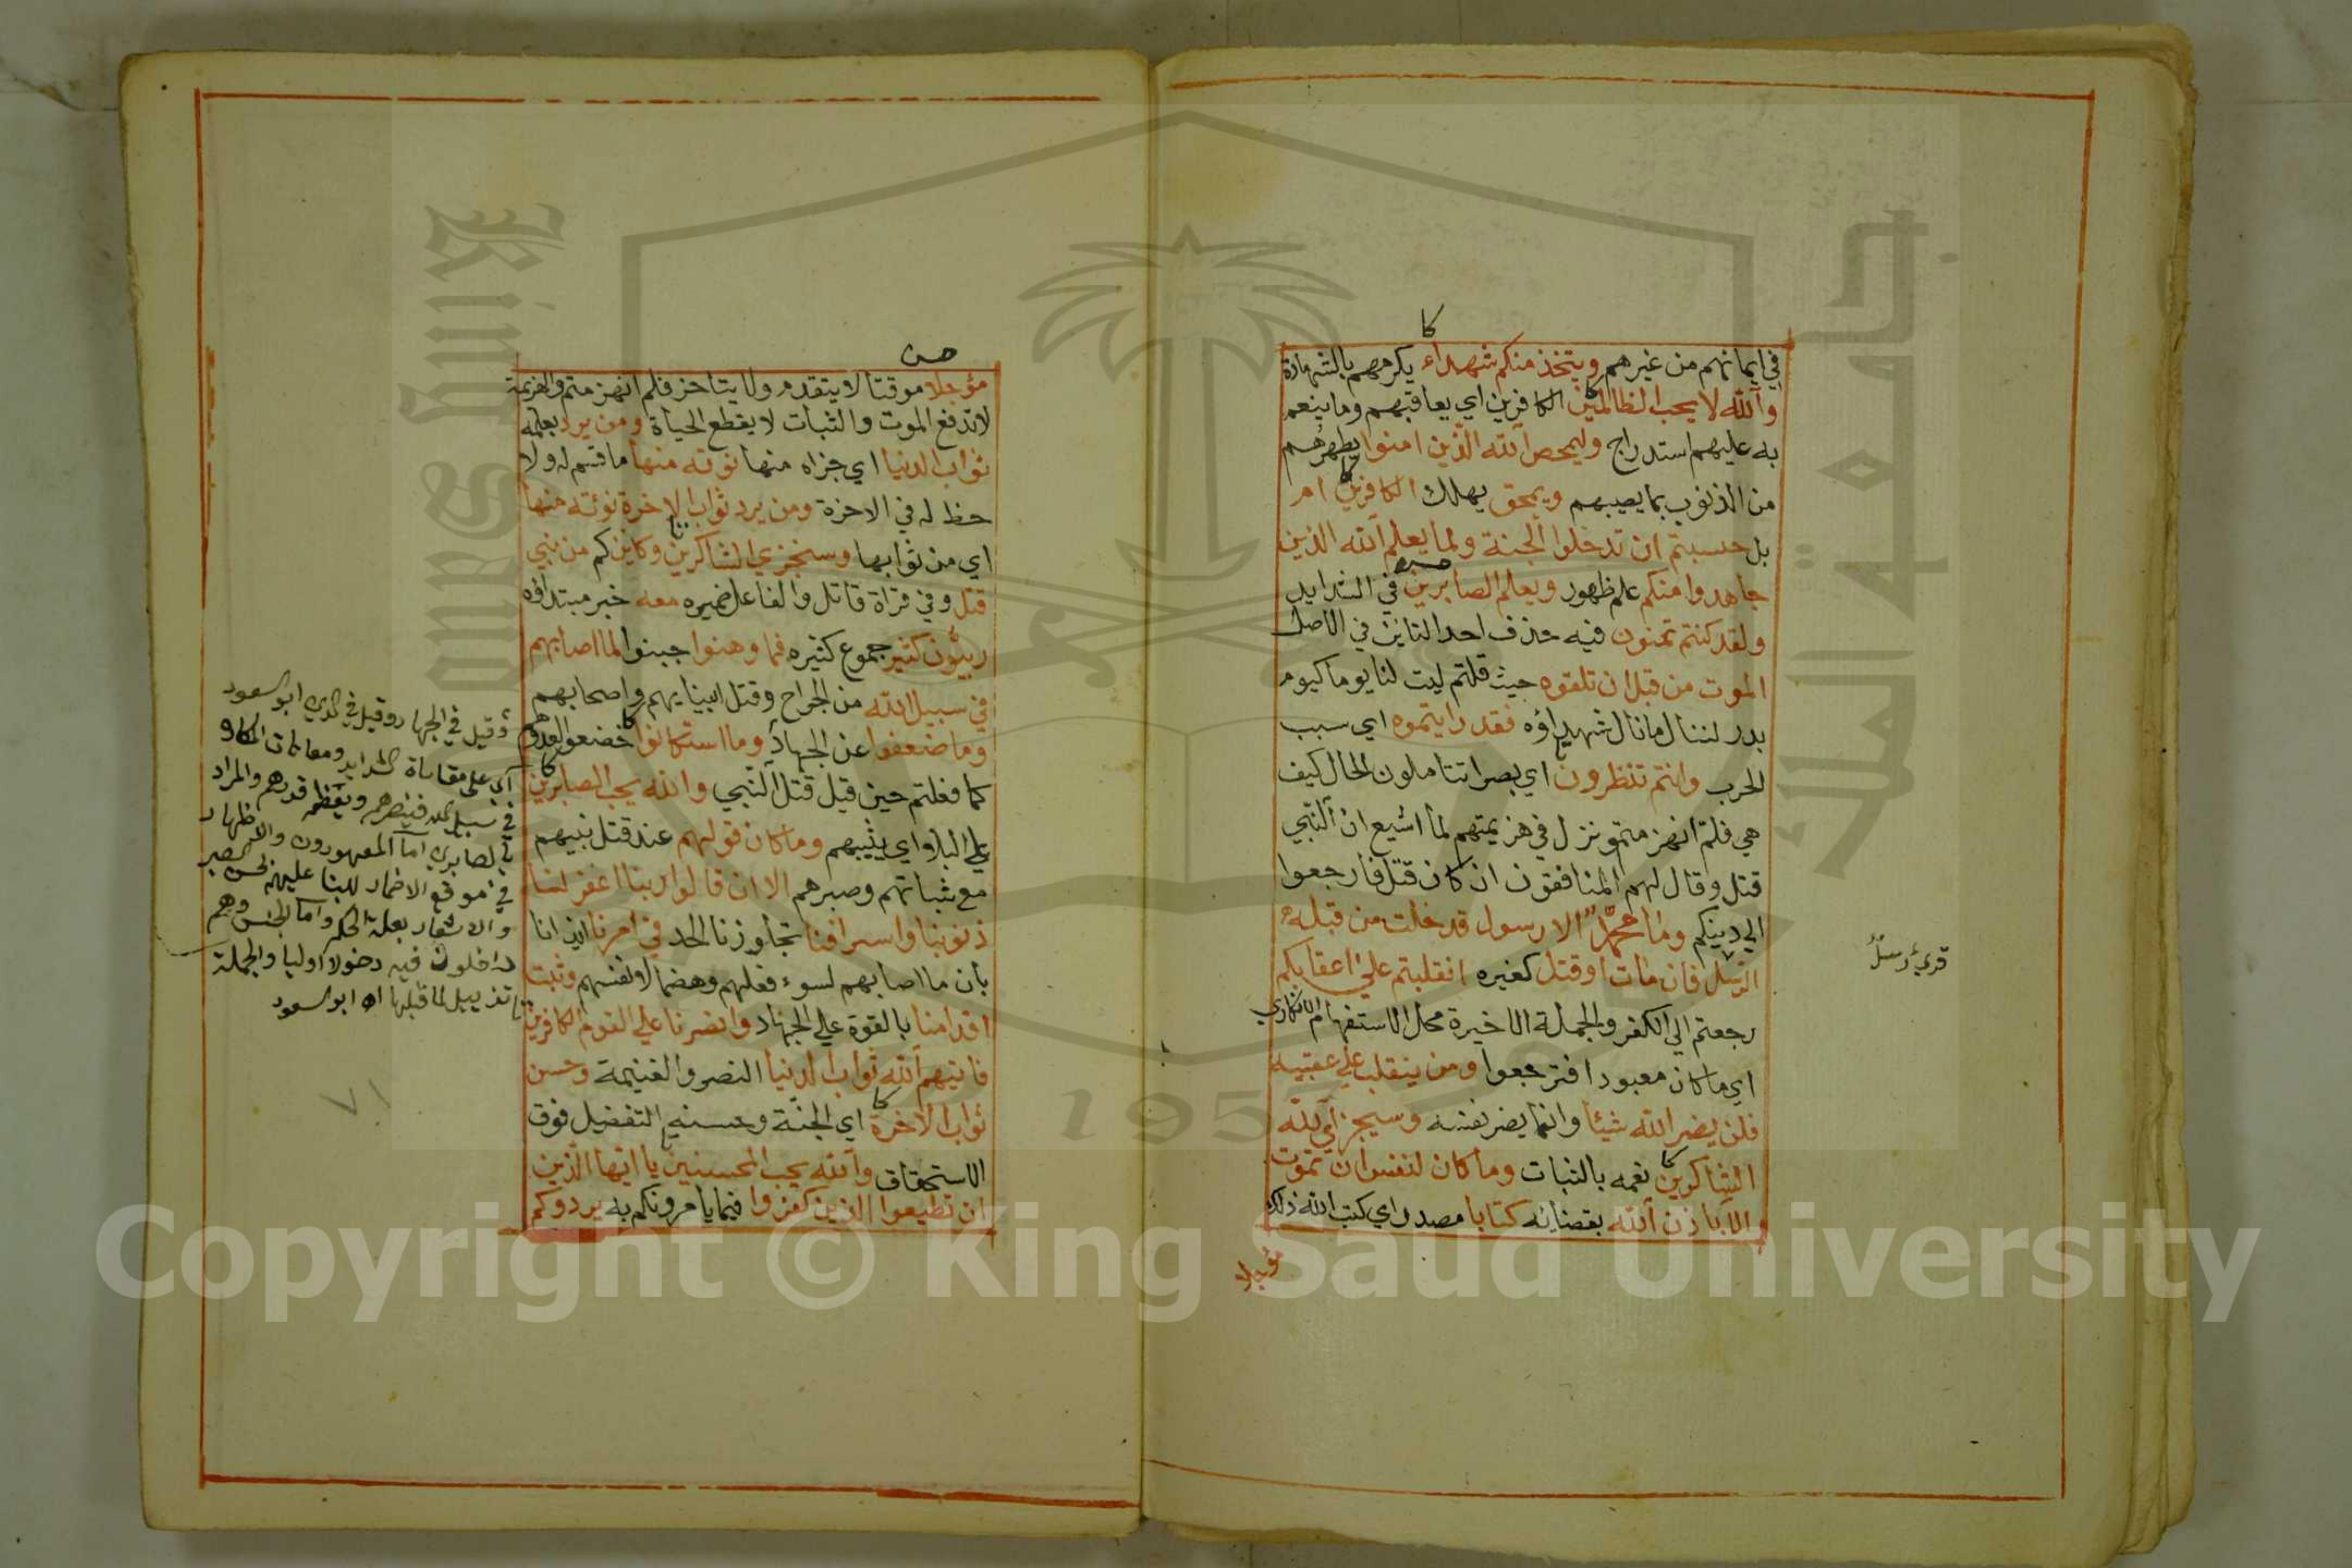 كا
في ايمانهم من غيرهم ويتخذ منكم شهداء يكرمهم بالشهادة
والله لا يحب الظالمين الكافرين اي يعاقبهم وما ينعم
به عليهم استدراج وليمحص الله الذين امنوا يطهرهم
من الذنوب بما يصيبهم ويمحق يهلك الكافرين ام
بل حسبتم ان تدخلوا الجنة ولما يعلم الله الذين
جاهدوا منكم علم ظهور ويعلم الصابرين في الشدايد
ولقد كنتم تمنون فيه حذف احد التائين في الاصل
الموت من قبل ان تلقوه حيث قلتم ليت لنا يوما كيوم
بدر لننال ما نال شهداؤه فقد رايتموه اي سبب
الحرب وانتم تنظرون اي بصرا تتاملون الحال كيف
هي فلم انهزمتم ونزل في هزيمتهم لما اشيع ان النبي
قتل وقال لهم المنافقون ان كان قتل فارجعوا
الي دينكم وما محمد الا رسول قد خلت من قبله
الرسل فان مات او قتل كغيره انقلبتم علي اعقابكم
رجعتم الي الكفر والجملة الاخيرة محل الاستفهام الانكاري
اي ما كان معبودا فترجعوا ومن ينقلب علي عقبيه
فلن يضر الله شيئا وانما يضر نفسه وسيجزي الله
الشاكرين نعمه بالثبات وما كان لنفس ان تموت
الا باذن الله بقضائه كتابا مصدر اي كتب الله ذلك
مؤجلا
قرئ رسل
حسن
مؤجلا موقتا لا يتقدم ولا يتاخر فلم انهزمتم والهزيمة
لا تدفع الموت والثبات لا يقطع الحياة ومن يرد بعمله
ثواب الدنيا اي جزاه منها نؤته منها ما قسم له ولا
حظ له في الاخرة ومن يرد ثواب الاخرة نؤته منها
اي من ثوابها وسنجزي الشاكرين وكاين كم من نبي
قتل وفي قراة قاتل والفاعل ضميره معه خبر مبتداؤه
ربيون كثير جموع كثيره فما وهنوا جبنوا لما اصابهم
في سبيل الله من الجراح وقتل انبيايهم واصحابهم
وما ضعفوا عن الجهاد وما استكانوا خضعوا لعدوهم
كما فعلتم حين قيل قتل النبي والله يحب الصابرين
علي البلاء اي يثيبهم وما كان قولهم عند قتل نبيهم
مع ثباتهم وصبرهم الا ان قالوا ربنا اغفر لنا
ذنوبنا واسرافنا تجاوزنا الحد في امرنا ايذانا
بان ما اصابهم لسوء فعلهم وهضما لانفسهم وثبت
اقدامنا بالقوة علي الجهاد وانصرنا علي القوم الكافرين
فاتيهم الله ثواب الدنيا النصر والغنيمة وحسن
ثواب الاخرة اي الجنة وحسنه التفضيل فوق
الاستحقاق والله يحب المحسنين يا ايها الذين
ان تطيعوا الذين كفروا فيما يامرونكم به يردوكم
وقيل في الجهاد وقيل في الدين ابو السعود
اي على مقاساة الشدايد ومعانات المكاره
في سبيل الله فينصرهم ويعظم قدرهم والمراد
بالصابرين اما المعهودون والاظهار
في موقع الاضمار للثنا عليهم بحسن الصبر
والاشعار بعلة الحكم واما الجنس وهم
داخلون فيه دخولا اوليا والجملة
تذييل لما قبلها اه ابو السعود
٧١
1957
Copyright © King Saud University